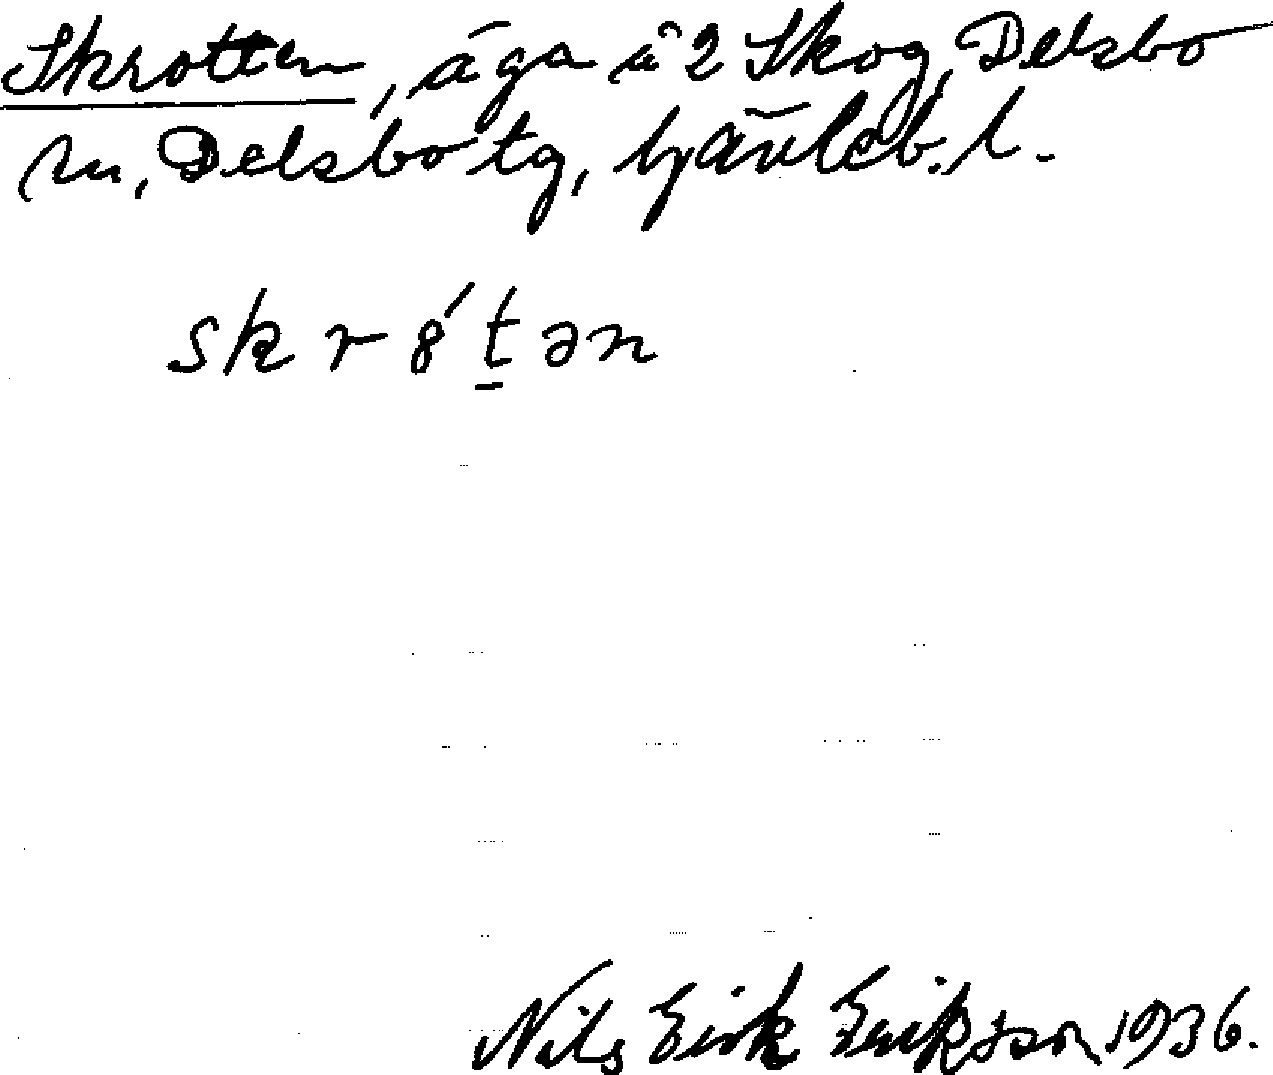 Skrotten, äga å 2 Skog, Delsbo
sn, Delsbo tg, Gävleb. l.
skr8́t̠ən
Nils Erik Eriksson 1936.